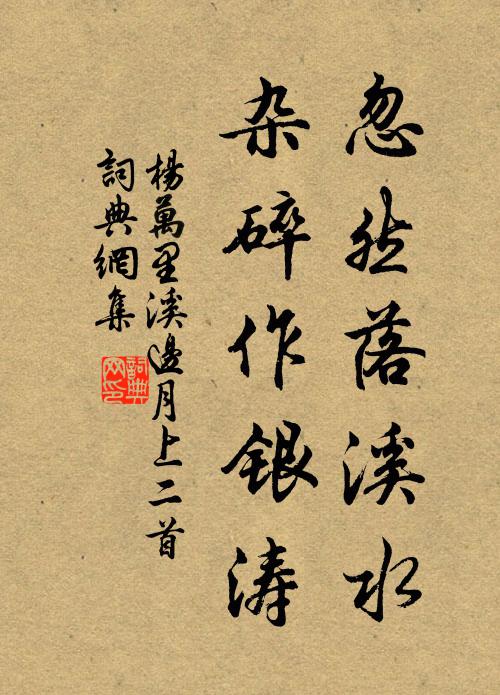 忽然落溪水
杂碎作银涛
楊萬里溪邊月上二首
詞典網集
詞典
网印